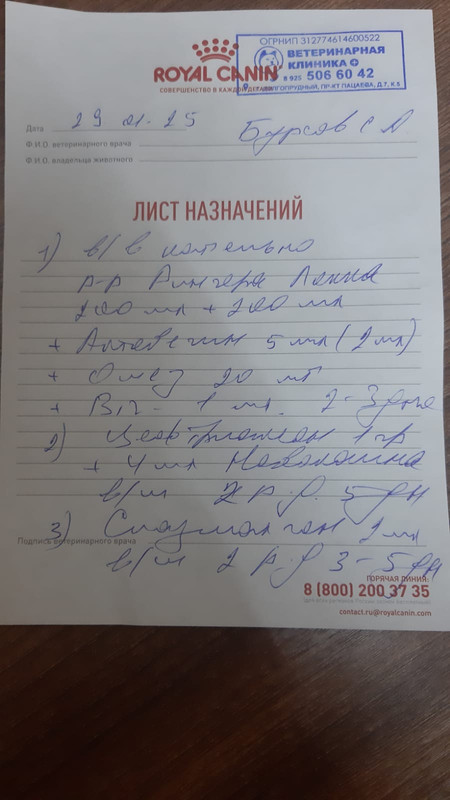 ОГРНИП 312774614600522
ВЕТЕРИНАРНАЯ
КЛИНИКА
8 925 506 60 42
Г. ДОЛГОПРУДНЫЙ, ПР-КТ ПАЦАЕВА, Д.7, К.6
ROYAL CANIN
СОВЕРШЕНСТВО В КАЖДОЙ ДЕТАЛИ
Дата 29 01.25
Ф.И.О. ветеринарного врача
Ф.И.О. владельца животного
ЛИСТ НАЗНАЧЕНИЙ
1) в/в капельно
р-р Рингера Локка
200 мл + 200 мл
+ Актовегин 5 мл (2 мл)
+ Омез 20 мг
+ В12 - 1 мл. 2-3 дня
2) Цефтриаксон 1 гр
+ 4 мл Новокаина
в/м 2 р. д. 5 дн
3) Спазмалгон 2 мл
Подпись ветеринарного врача
в/м 2 р. д 3-5 дн
ГОРЯЧАЯ ЛИНИЯ:
8 (800) 200 37 35
contact.ru@royalcanin.com